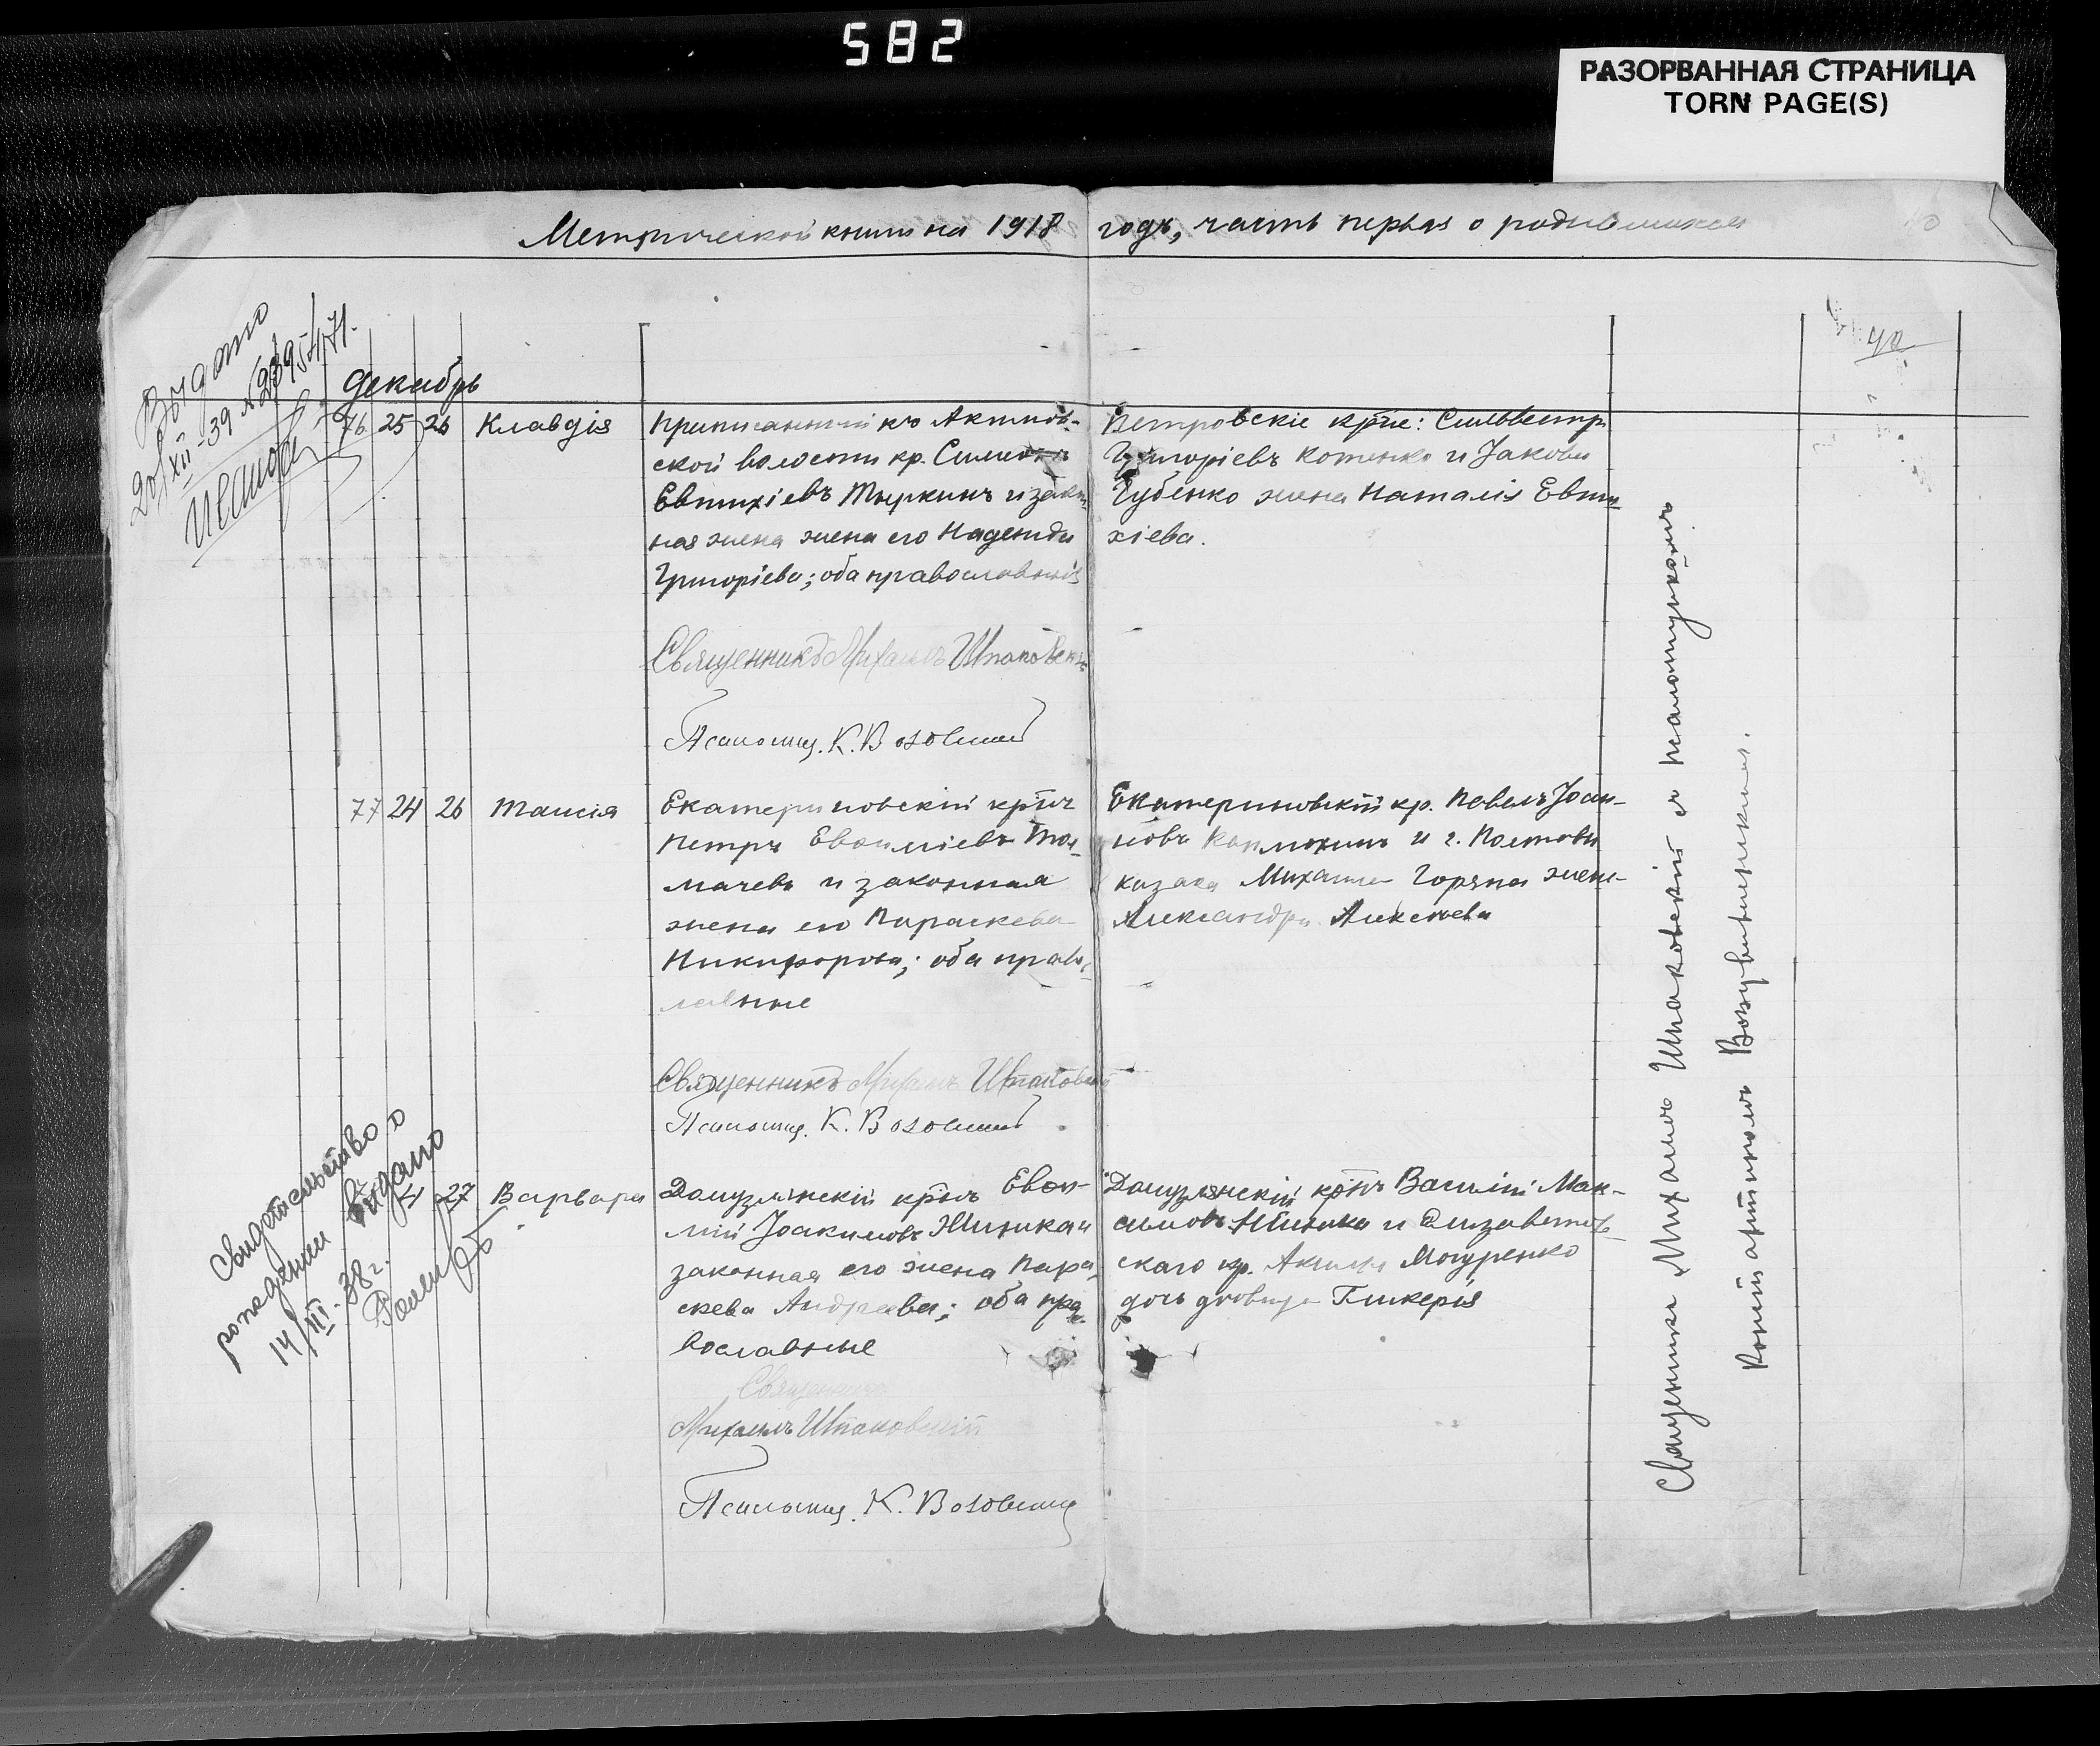 582
РАЗОРВАННАЯ СТРАНИЦА
TORN PAGE(S)
Метрической книги на 1918 годъ, часть первая о родившихся
40
Выдано
20/XII-39
Иванов
Декабрь
76 25 26 Клавдія
Приписанный къ Акимов-
ской волости кр. Симеонъ
Евтихіевъ Тыркинъ и закон-
ная жена жена его Надежда
Григоріева; оба православныя
Священникъ Михаилъ Шпаковскій
Псаломщ. К. Возовикий
Петровскіе кр-не: Сильвестръ
Григоріевъ Котенко и Іакова
Губенко жена Наталія Евти-
хіева.
77 24 26 Таисія
Екатериновскій кр-нъ
Петръ Евѳиміевъ Тол-
мачевъ и законная
жена его Параскева
Никифорова; оба правос-
лавные
Священникъ Михаилъ Шпаковскій
Псаломщ. К. Возовикий
Екатериновскій кр. Павелъ Іоан-
новъ и г. Полтавы
казака Михаила Горяна жена
Александра Алексѣева
Свидетельство о
рождении выдано
14/III-38 г.
27 Варвара
Донузлинскій кр-нъ Евѳи-
мій Іоакимовъ Жишка и
законная его жена Пара-
скева Андреева; оба пра-
вославные
Священникъ
Михаилъ Шпаковскій
Псаломщ. К. Возовикий
Донузлинскій кр-нъ Василій Мак-
симовъ Жишка и Елизаветов-
скаго кр. Акима Мазуренко
дочь дѣвица Гликерія
Священникъ Михаилъ Шпаковскій съ псаломщикомъ